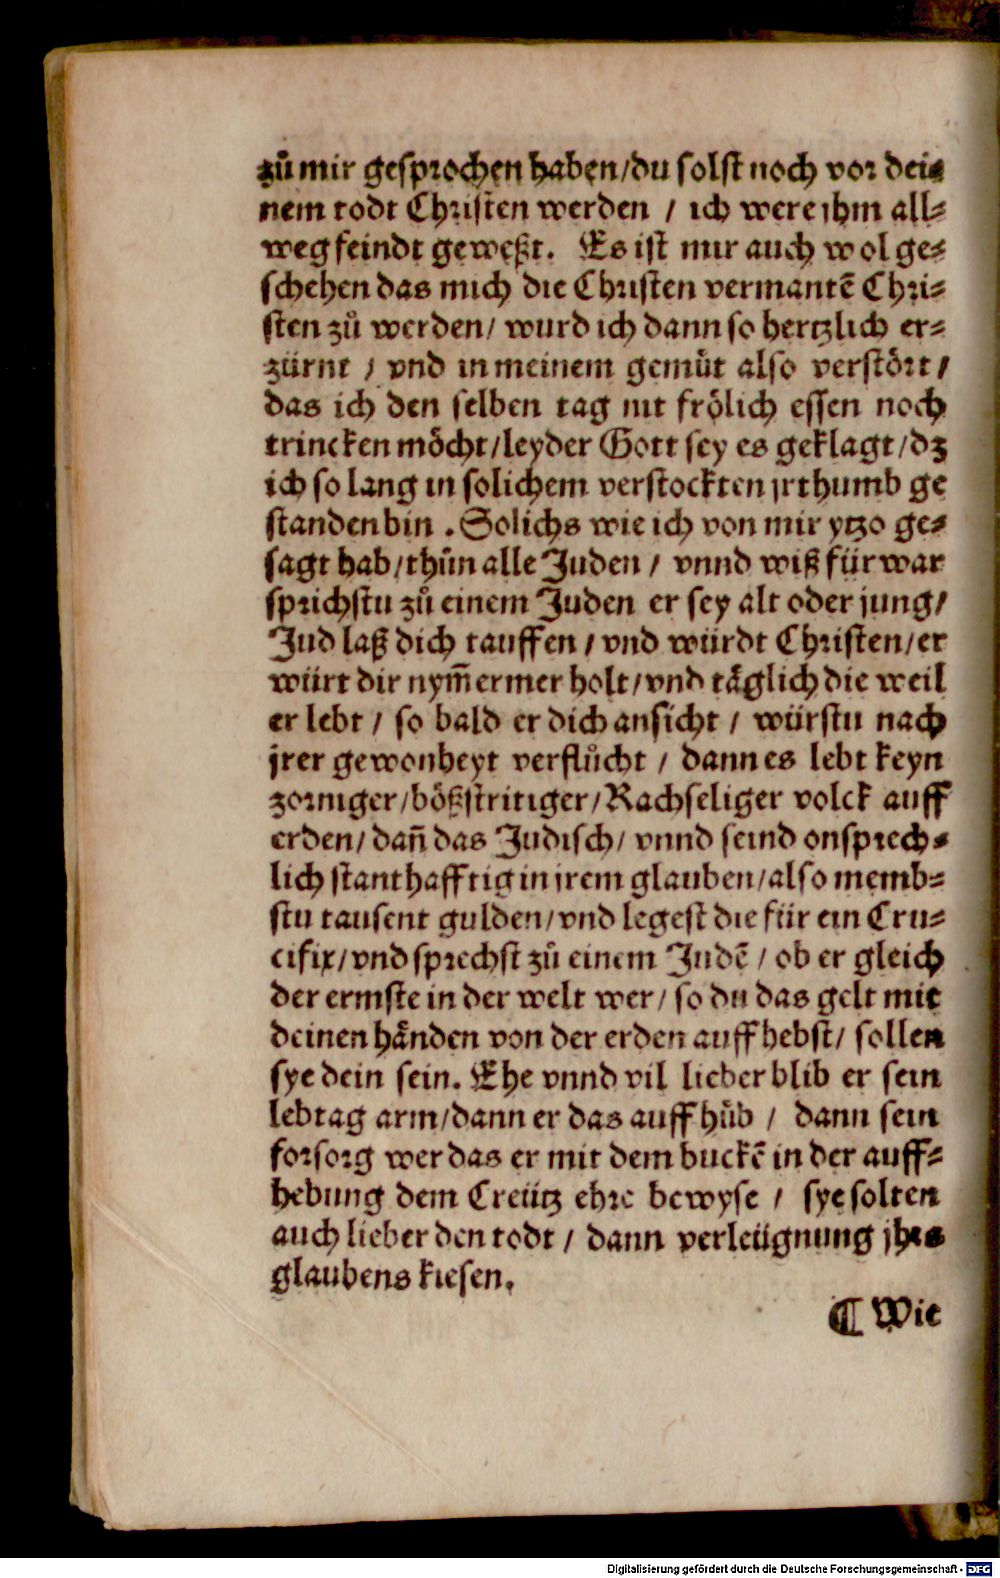 zů mir gesprochen haben/du solst noch vor dei⸗
nem todt Christen werden / ich were jhm all⸗
weg feindt geweßt. Es ist mir auch wol ge⸗
schehen das mich die Christen vermantē Chri⸗
sten zů werden/ wurd ich dann so hertzlich er⸗
zürnt / vnd in meinem gemüt also verstört/
das ich den selben tag nit frölich essen noch
trincken möcht/leyder Gott sey es geklagt/dz
ich so lang in solichem verstockten jrthumb ge
standen bin .Solichs wie ich von mir ytzo ge⸗
sagt hab/thün alle Juden / vnnd wiß für war
sprichstu zů einem Juden er sey alt oder jung/
Jud laß dich tauffen/ vnd würdt Christen/er
würt dir nym̄ermer holt/vnd täglich die weil
er lebt / so bald er dich ansicht / würstu nach
jrer gewonheyt verflůcht / dann es lebt keyn
zorniger/bößstritiger/Rachseliger volck auff
erden/ dan̄ das Judisch/ vnnd seind onsprech⸗
lich stanthafftig in jrem glauben/also memb⸗
stu tausent gulden/vnd legest die für ein Cru⸗
cifix/vnd sprechst zů einem Judē / ob er gleich
der ermste in der welt wer/ so du das gelt mit
deinen händen von der erden auff hebst/ sollen
sye dein sein. Ehe vnnd vil lieber blib er sein
lebtag arm/dann er das auff hüb / dann sein
forsorg wer das er mit dem buckē in der auff⸗
hebung dem Creütz ehre bewyse / sye solten
auch lieber den todt / dann verleügnung jhrs
glaubens kiesen.
¶ Wie
Digitalisierung gefördert durch die Deutsche Forschungsgemeinschaft - DFG